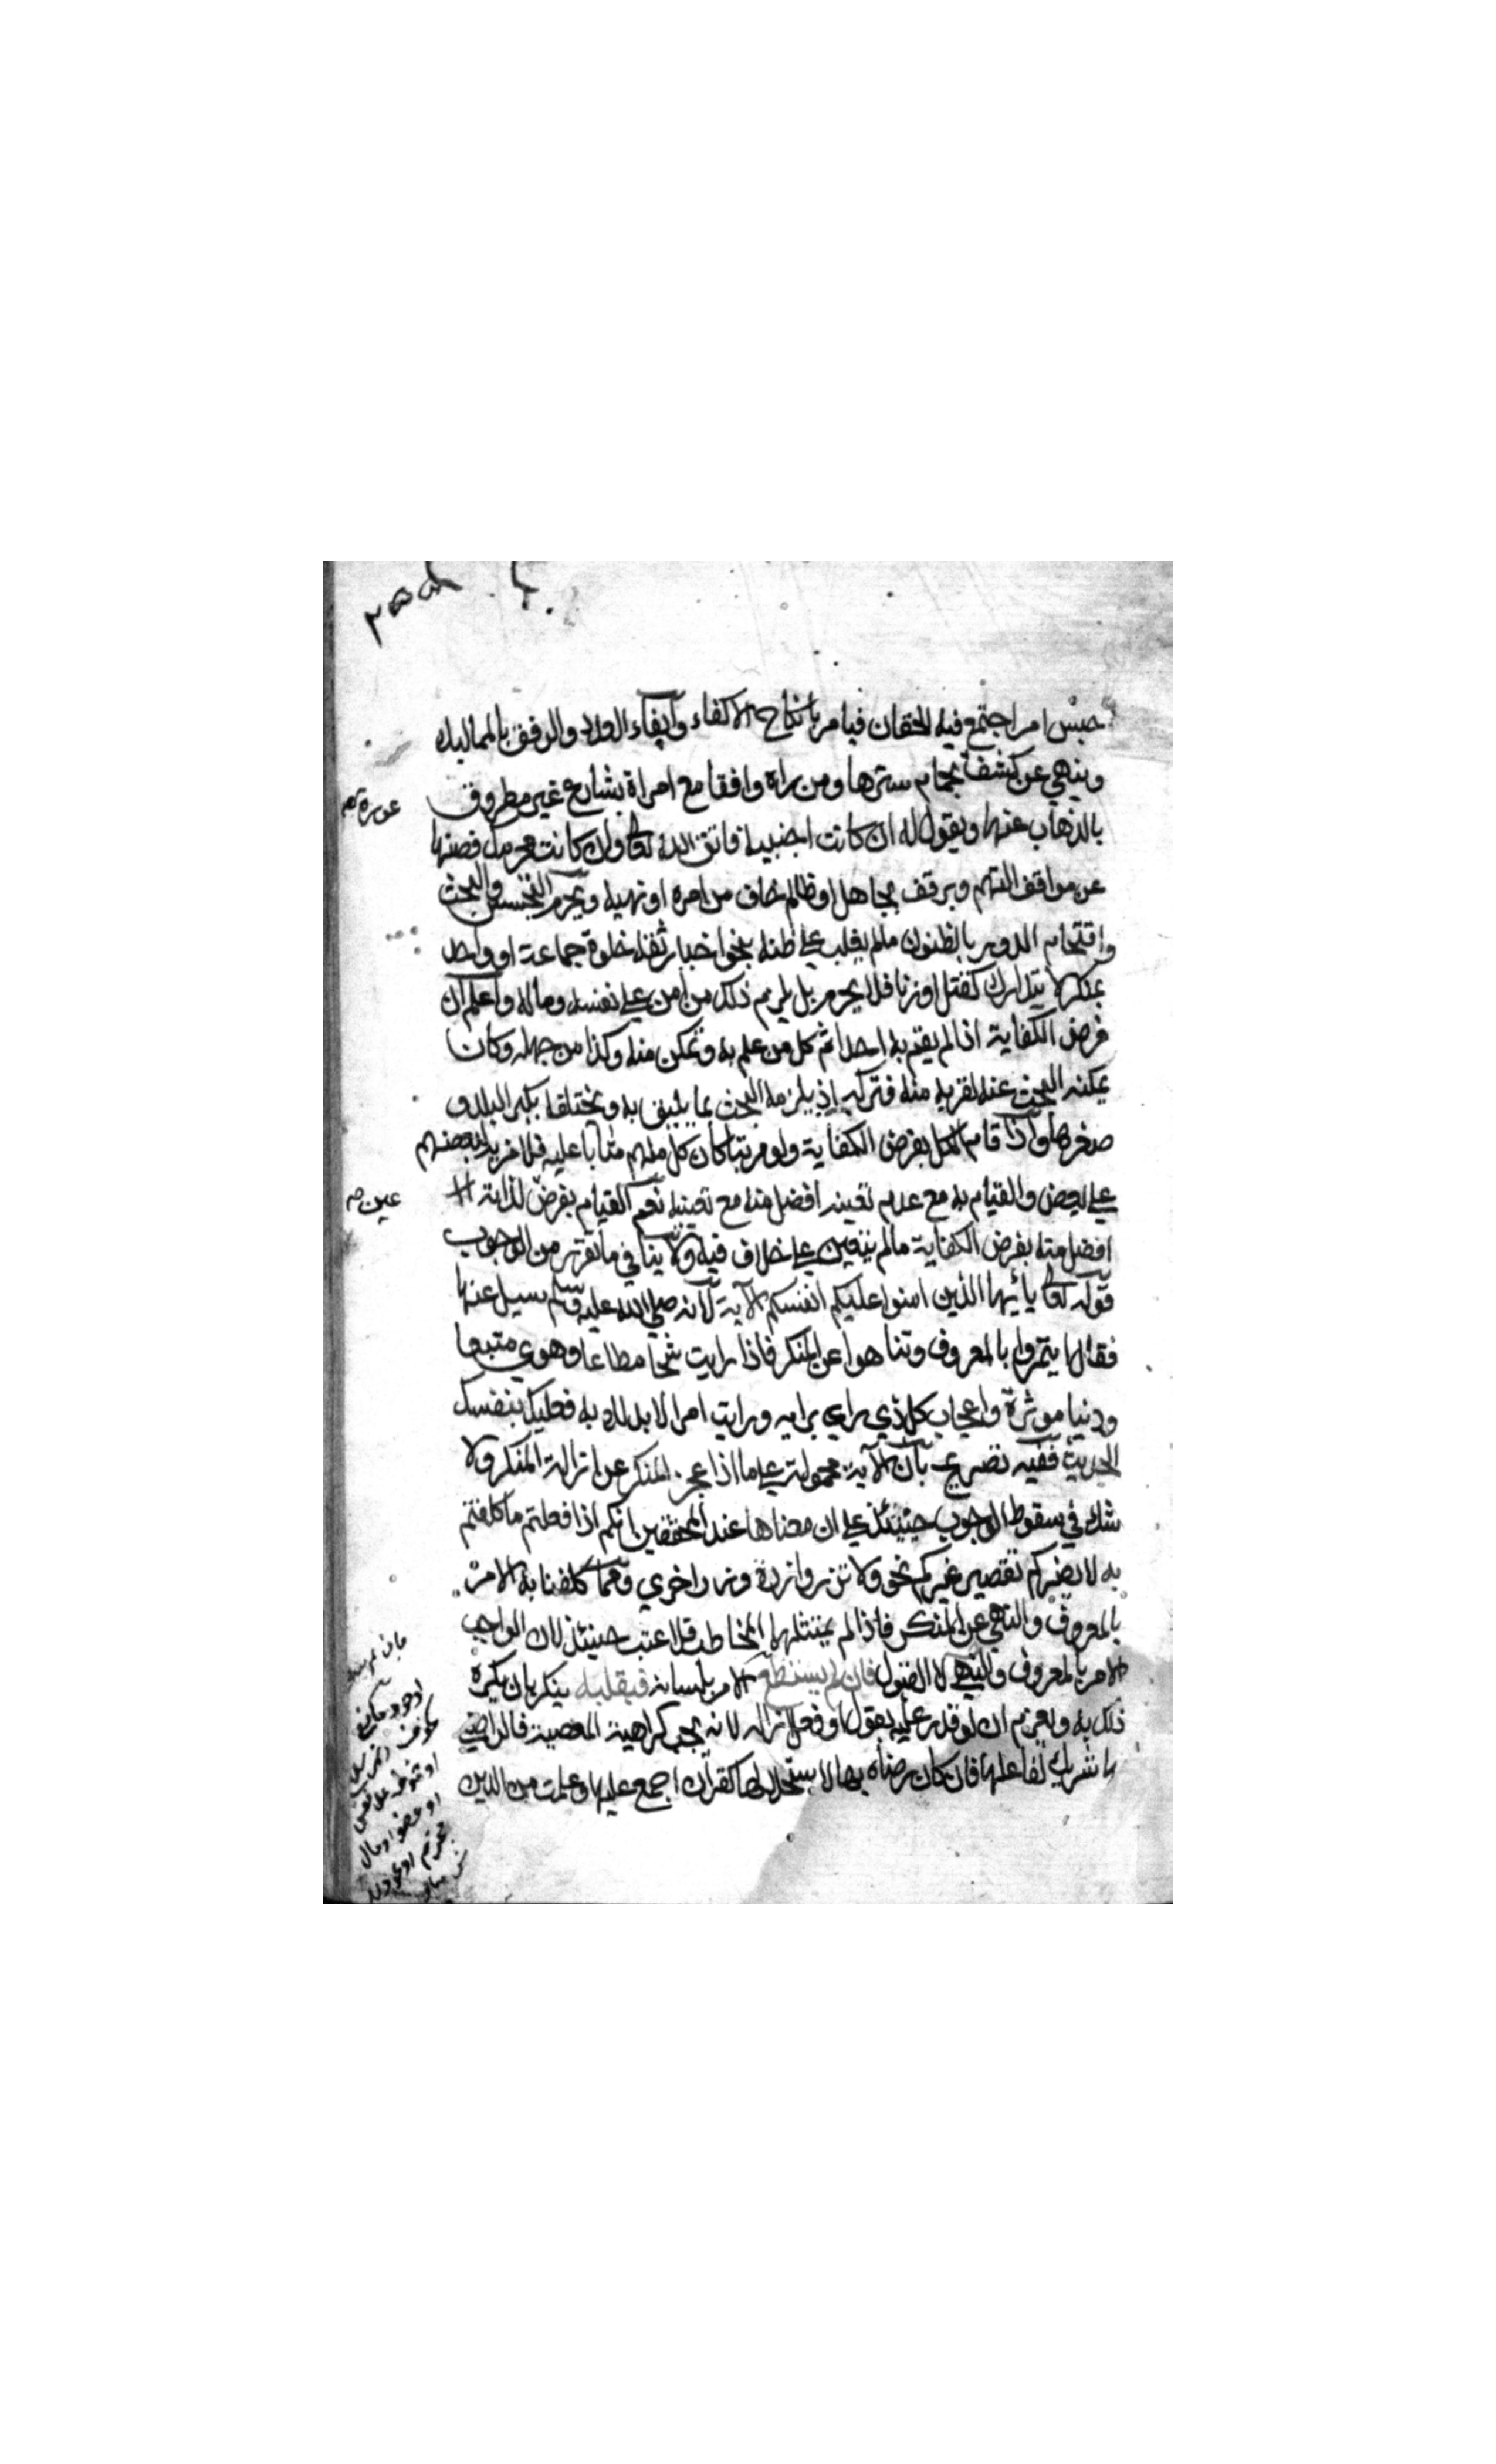 حبس امر اجتمع فيه الحقان فيامر بانكاح الاكفاء وايفاء الولد والرفق بالمماليك
وينهي عن كشف بحمام سترها ومن راه واقفا مع امراة بشارع غير مطروق
عورة صم
بالذهاب عنها ويقول له ان كانت اجنبية فاتق الله تعالى وان كانت محرمك فصنها
عن مواقف التهم ويرفق بجاهل او ظالم خاف من امره او نهيه ويحرم التجسس والبحث
واقتحام الدور بالظنون مالم يغلب على ظنه بنحو اخبار ثقة خلوة جماعة او واحد
بمنكر لا يتدارك كقتل او زنا فلا يحرم بل يلزم ذلك من امن على نفسه وماله واعلم ان
فرض الكفاية اذا لم يقم به احد اثم كل من علم به وتمكن منه وكذا من جهله وكان
يمكنه البحث عنه لقربه منه فتركه اذ يلزمه البحث بما يليق به ويختلف بكبر البلد و
صغرها واذا قام الكل بفرض الكفاية ولو مرتبا كان كل منهم مثابا عليه فلا مزية لبعضهم
على بعض والقيام به مع عدم تعينه افضل منه مع تعينه نعم القيام بفرض لذاته
عين صم
افضل منه بفرض الكفاية مالم يتعين على خلاف فيه ولا ينافي ما تقرر من الوجوب
قوله تعالى يأيها الذين امنوا عليكم انفسكم الآية لانه صلي الله عليه وسلم سيل عنها
فقال ايتمروا بالمعروف وتناهوا عن المنكر فاذا رايت شحا مطاعا وهوي متبعا
ودنيا موثرة واعجاب كل ذي راي برايه ورايت امرا لا بد لك به فعليك بنفسك
الحديث ففيه تصريح بان الآية محمولة على ما اذا عجز المنكر عن ازالة المنكر ولا
شك في سقوط الوجوب حينئذ على ان معناها عند المحققين انكم اذا فعلتم ما كلفتم
به لا يضركم تقصير غيركم نحو ولا تزر وازرة وزر اخري ومما كلفنا به الامر
بالمعروف والنهي عن المنكر فاذا لم يمتثلهما المخاطب فلا عتب حينئذ لان الواجب
الامر بالمعروف والنهي لا القبول فان لم يستطع الامر بلسانه فبقلبه ينكر بان يكره
ذلك به ويعزم ان لو قدر عليه بقول او فعل ازاله لانه يجب كراهية المعصية فالراضي
بها شريك لفاعلها فان كان رضاه بها لاستحلالها كفر ان اجمع عليها وعلمت من الدين